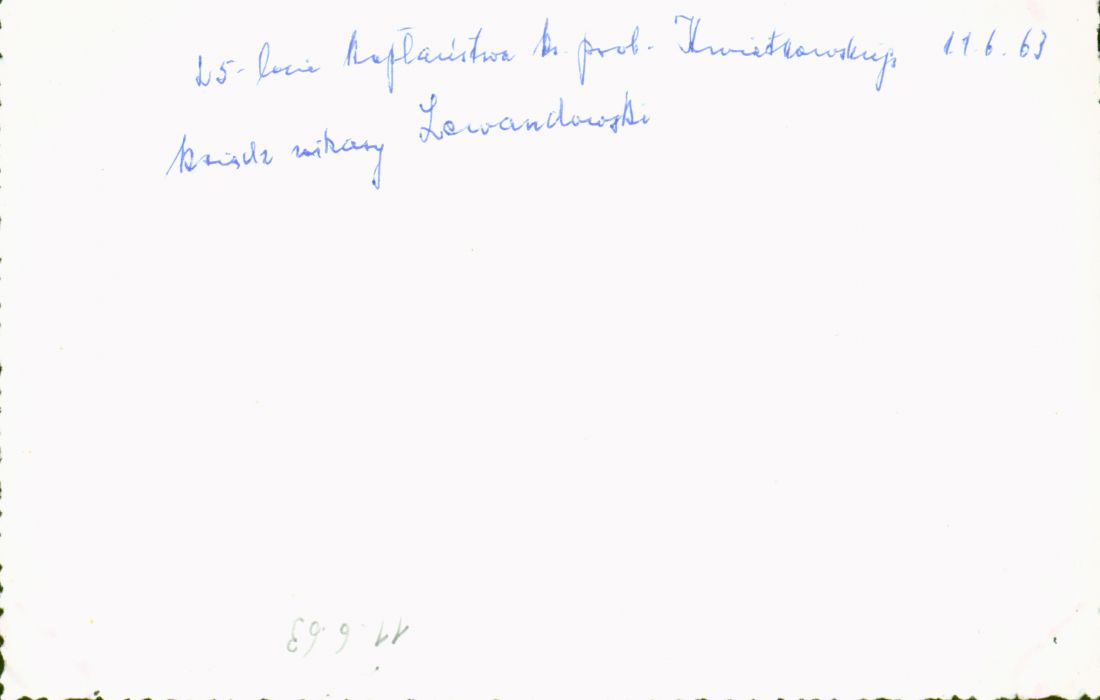 25-lecie kapłaństwa ks. prob. Kwiatkowskiego 11.6.63
ksiądz wikary Lewandowski
11.6.63